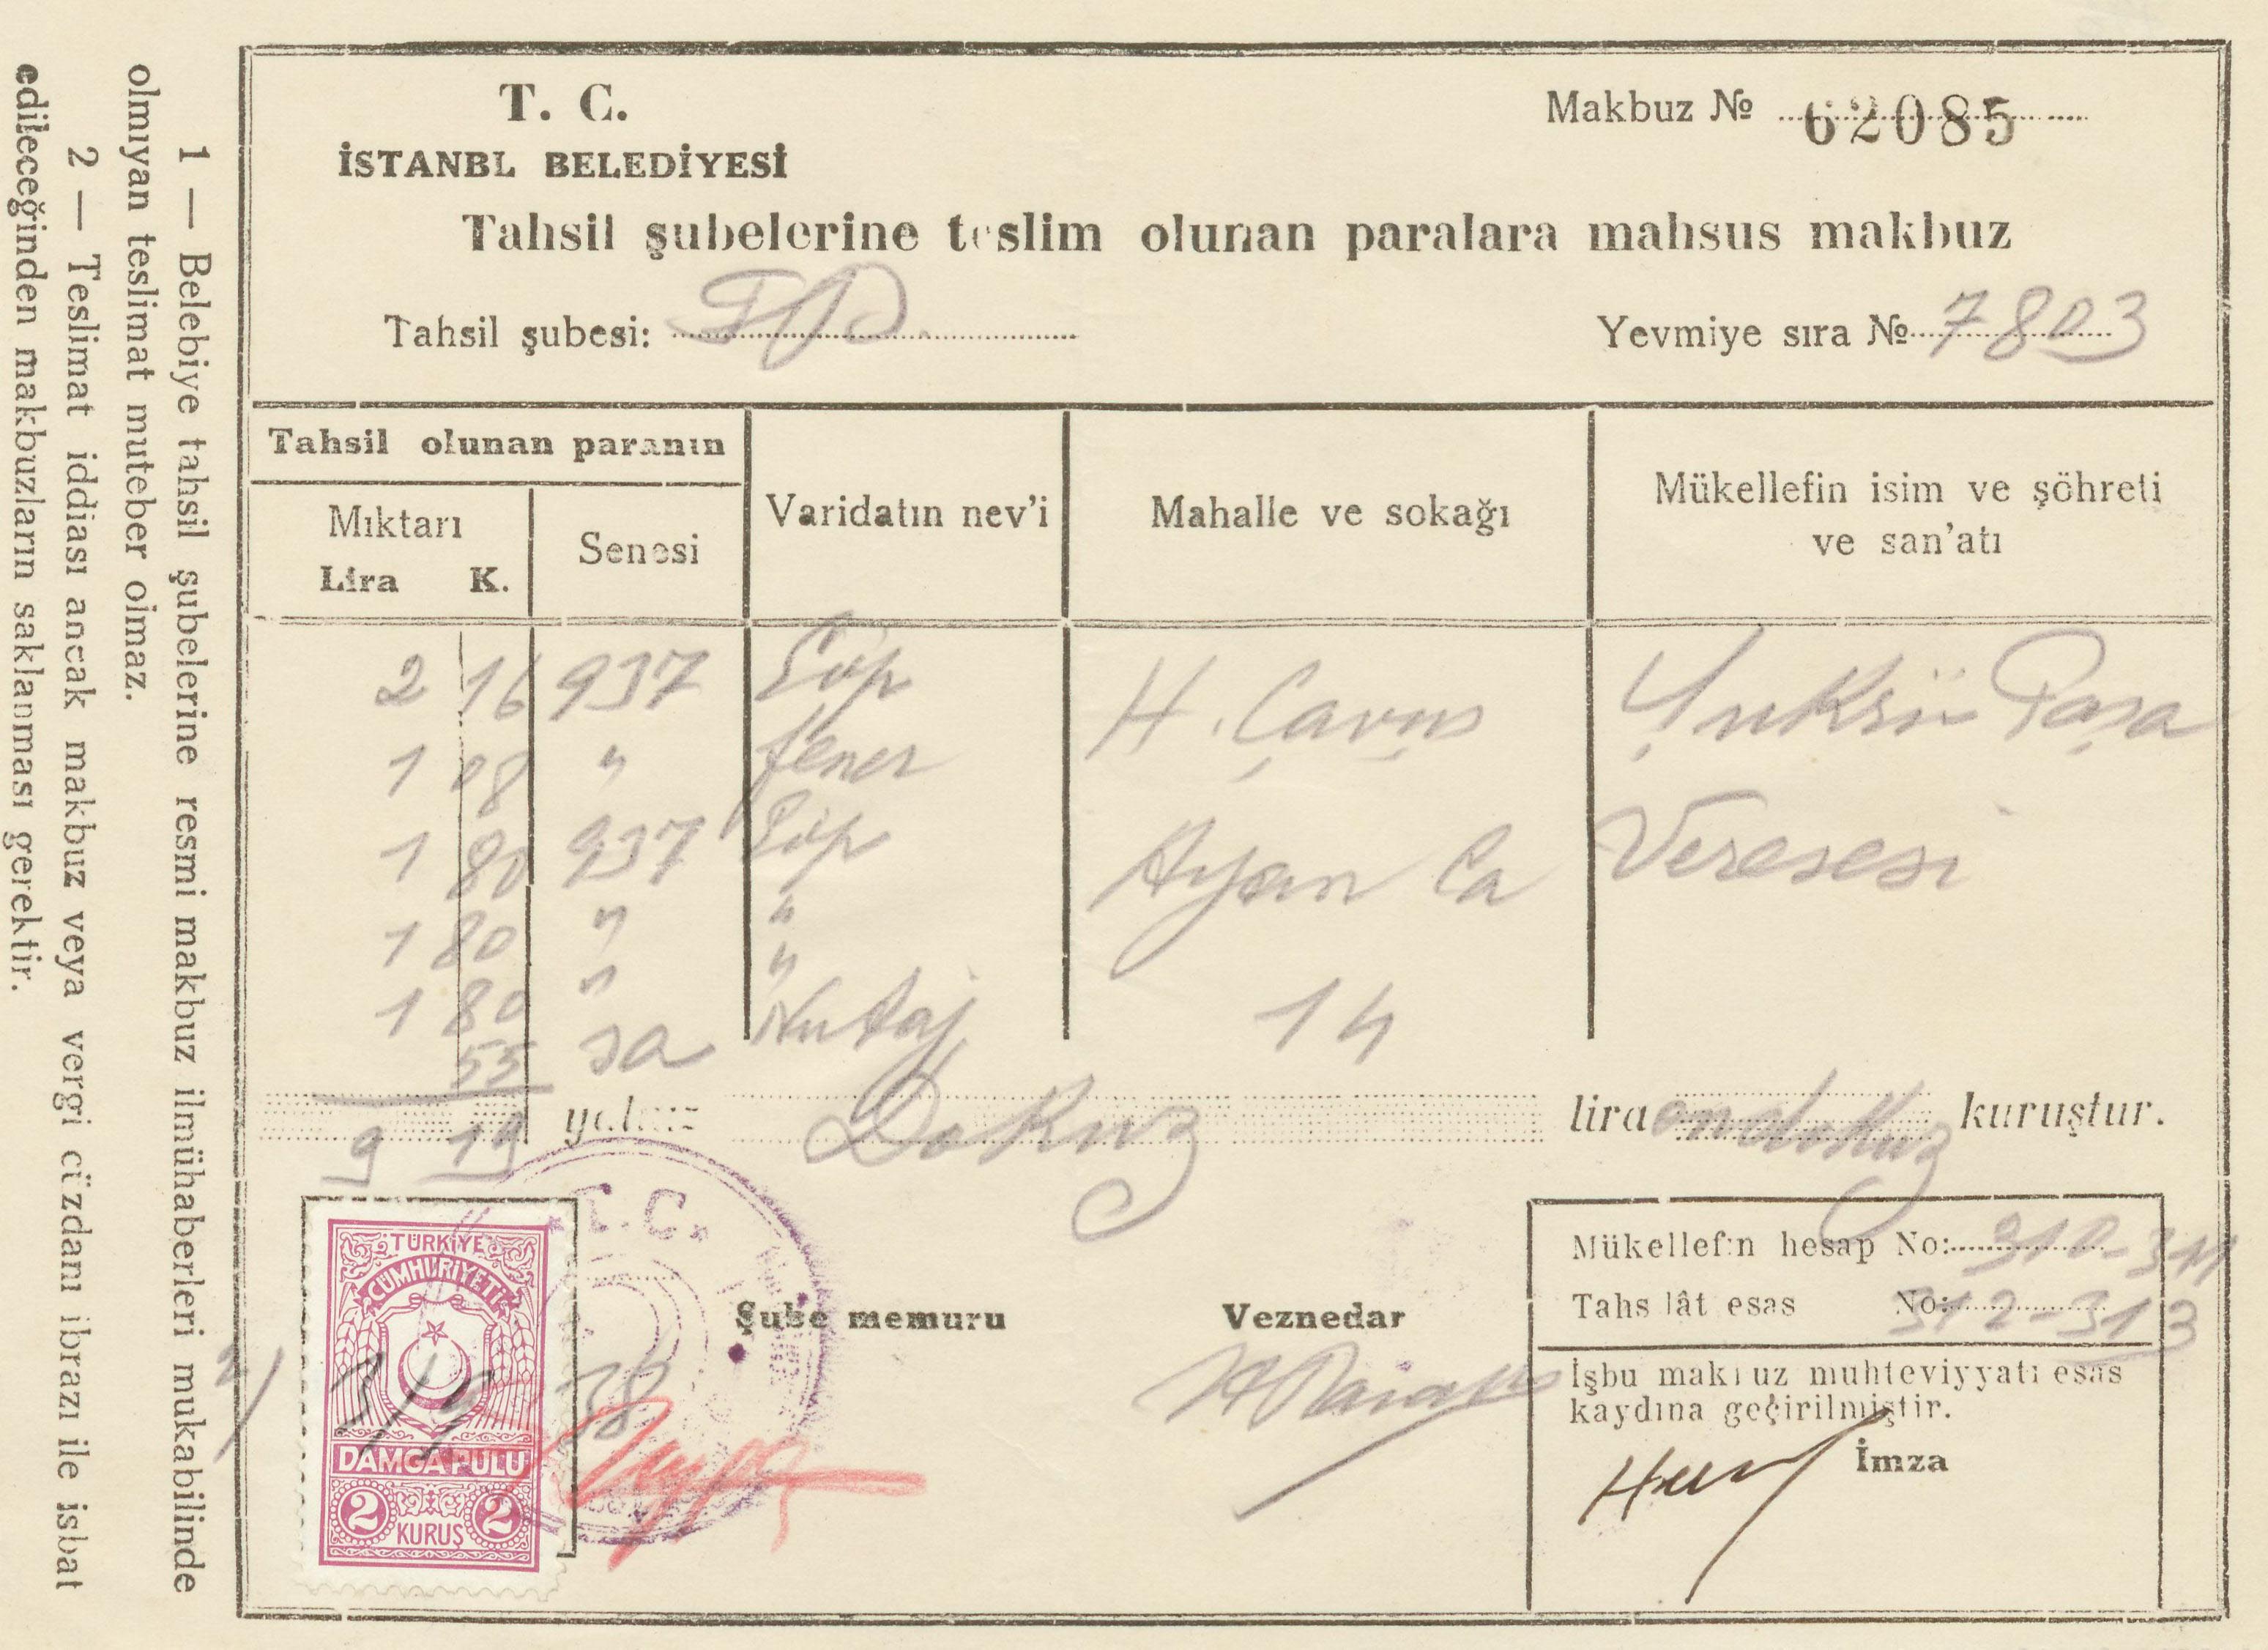 T. C.
İSTANBL BELEDİYESİ
Makbuz № 62085
Tahsil şubelerine teslim olunan paralara mahsus makbuz
Tahsil şubesi:
Yevmiye sıra № 7803
Tahsil olunan paranın
Mıktarı
Lira K.
Senesi
Varidatın nev'i
Mahalle ve sokağı
Mükellefin isim ve şöhreti
ve san'atı
2 16 937 Çöp
1 08 " fener
1 80 937 Çöp
1 80 " "
1 80 " "
55
H. Çavuş
Ayan Ca
14
Şukrü Paşa
Veresesi
9 19 yalnız Dokuz lira ondokuz kuruştur.
TÜRKİYE
CÜMHURİYETİ
DAMGA PULU
2 KURUŞ 2
T.C.
38
Şube memuru
Veznedar
Mükellefin hesap No: 310-311
Tahs lât esas No: 312-313
İşbu makbuz muhteviyyatı esas
kaydına geçirilmiştir.
İmza
1 — Belebiye tahsil şubelerine resmi makbuz ilmühaberleri mukabilinde
olmıyan teslimat muteber olmaz.
2 — Teslimat iddiası ancak makbuz veya vergi cüzdanı ibrazı ile isbat
edileceğinden makbuzların saklanması gerektir.